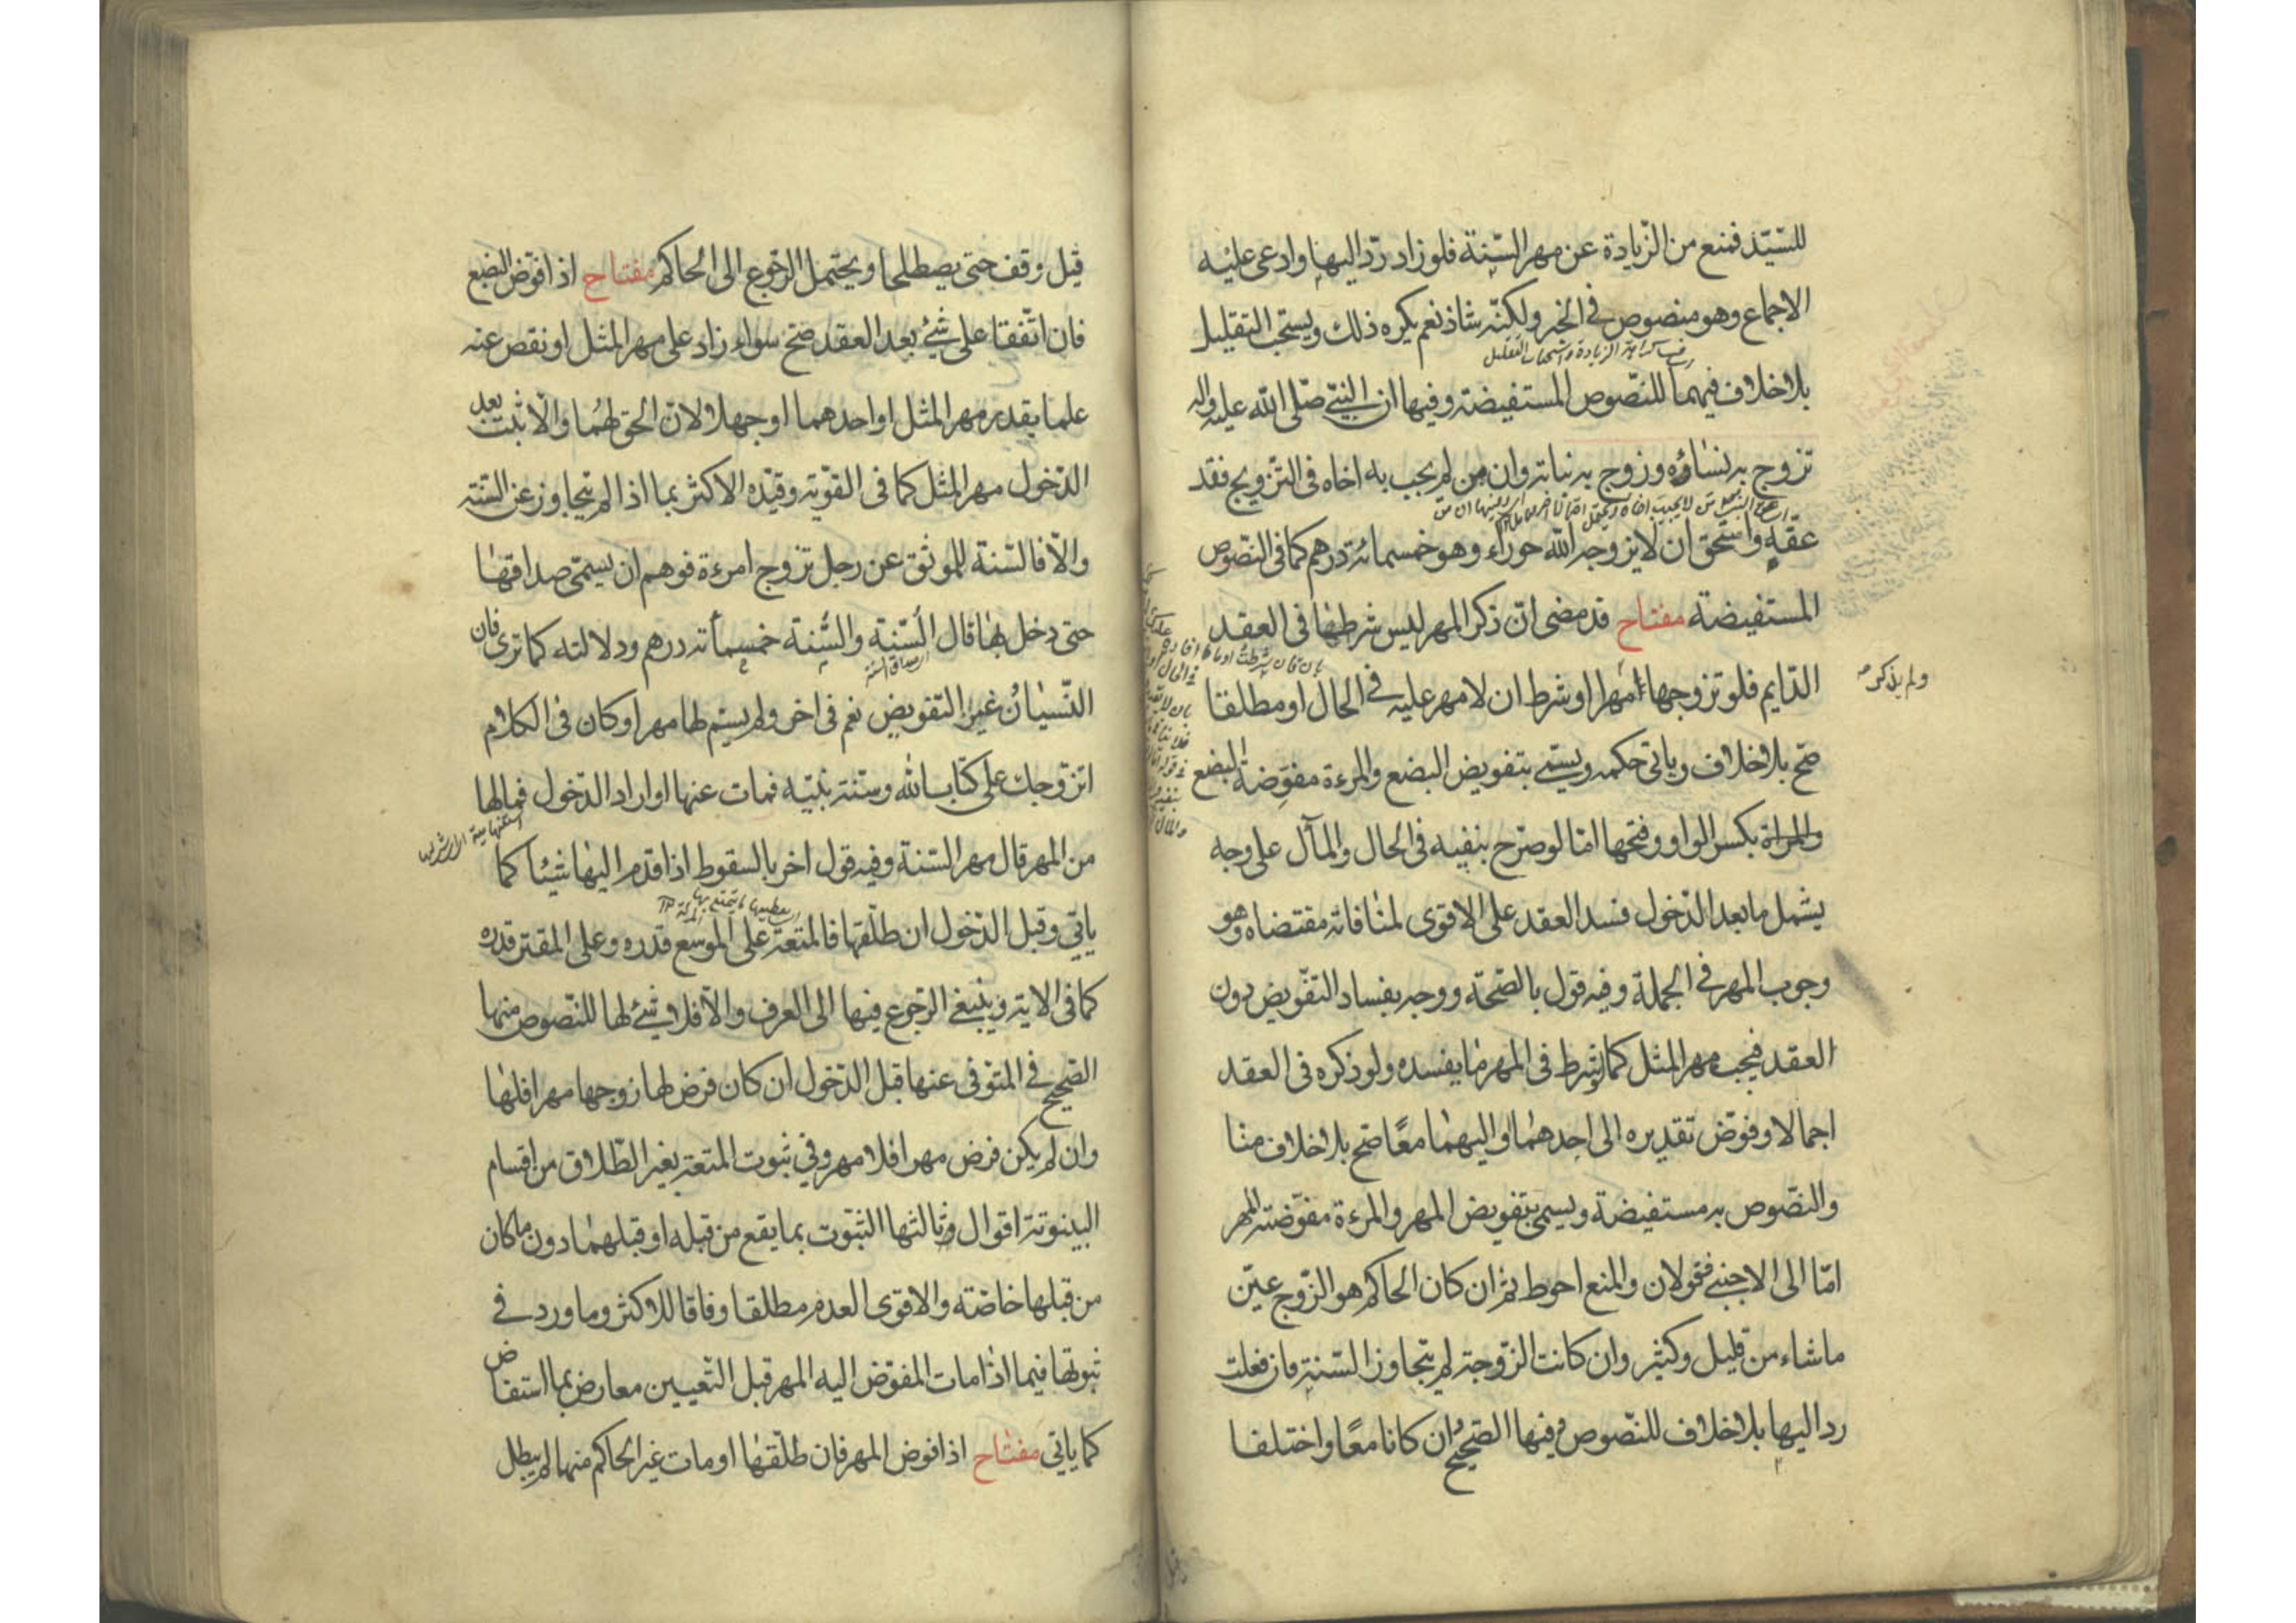 للسّيّد فمنع من الزّيادة عن مهر السّنة فلو زاد ردّ اليها وادعى عليه
الاجماع وهو منصوص في الخبر ولكنّه شاذ نعم يكره ذلك ويستحب التقليل
بلا خلاف فيهما للنّصوص المستفيضة وفيها ان النبيّ صلّى الله عليه واله
تزوج به نساؤه وزوج به بناته وان من لم يجب به اخاه في التزويج فقد
عقه واستحق ان لا يزوجه الله حوراء وهو خمسمائة درهم كما في النصّوص
المستفيضة مفتاح قد مضى انّ ذكر المهر ليس شرطها في العقد
الدّايم فلو تزوجها مهرا او شرط ان لا مهر عليه في الحال او مطلقا
ولم يذكر
صحّ بلا خلاف وياتي حكمه ويسمّى بتفويض البضع والمرءة مفوّضة البضع
والمراة بكسر الواو وفتحها امّا لو صرّح بنفيه في الحال والمآل على وجه
يشمل ما بعد الدّخول فسد العقد على الاقوى لمنافاته مقتضاه وهو
وجوب المهر في الجملة وفيه قول بالصّحة ووجه بفساد التفّويض دون
العقد فيجب مهر المثل كما لو شرط في المهر ما يفسده ولو ذكره في العقد
اجمالا وفوّض تقديره الى احدهما او اليهما معًا صحّ بلا خلاف منا
والنصّوص به مستفيضة ويسمى بتفويض المهر والمرءة مفوّضة المهر
امّا الى الاجنبي فقولان والمنع احوط ثم ان كان الحاكم هو الزّوج عيّن
ما شاء من قليل وكثير وان كانت الزّوجة لم يتجاوز السّنة فان فعلت
رد اليها بلا خلاف للنّصوص وفيها الصّحيح وان كانا معًا واختلفا
قيل وقف حتى يصطلحا ويحتمل الرّجوع الى الحاكم مفتاح اذا فوّض البضع
فان اتّفقا على شئ بعد العقد صحّ سواء زاد على مهر المثل او نقص عنه
علما بقدر مهر المثل او احدهما او جهلا لانّ الحق لهما والّا ثبت بعد
الدّخول مهر المثل كما في القوّية وقيّده الاكثر بما اذا لم يتجاوز عن السّنة
والّا فالسّنة للموثق عن رجل تزوج امرءة فوهم ان يسمّى صداقها
حتى دخل بها قال السّنة والسّنة خمسمأة درهم ودلالته كما ترى فان
النّسيان غير التفويض نعم في اخر ولم يسّم لها مهرا وكان في الكلام
اتزوّجك على كتاب الله وسنّة نبيّه فمات عنها او اراد الدّخول فما لها
من المهر قال مهر السّنة وفيه قول اخر بالسقوط اذا قدم اليها شيئا كما
ياتي وقبل الدّخول ان طلّقها فالمتعة على الموسع قدره وعلى المقتر قدره
كما في الاية وينبغي الرّجوع فيها الى العرف والّا فلا شئ لها للنّصوص منها
الصّحيح في المتوفى عنها قبل الدّخول ان كان فرض لها زوجها مهرا فلها
وان لم يكن فرض مهرا فلا مهر وفي ثبوت المتعة بغير الطّلاق من اقسام
البينونة اقوال وثالثها الثبّوت بما يقع من قبله او قبلهما دون ما كان
من قبلها خاصّة والاقوى العدم مطلقا وفاقا للاكثر وما ورد في
ثبوتها فيما اذا مات المفوّض اليه المهر قبل التّعيين معارض بما استفاض
كما ياتي مفتاح اذا فوض المهر فان طلّقها او مات غير الحاكم منهما لم يبطل